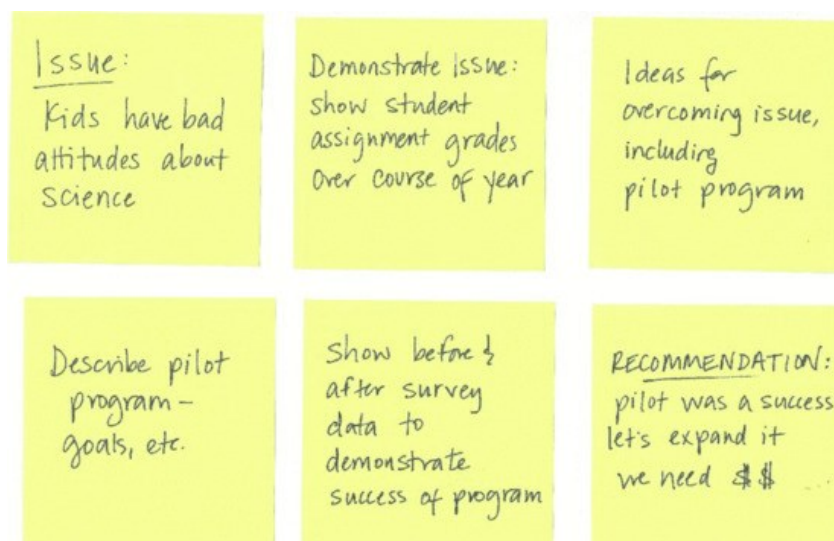 Issue:
Kids have bad
attitudes about
science
Demonstrate issue:
show student
assignment grades
over course of year
Ideas for
overcoming issue,
including
pilot program
Describe pilot
program –
goals, etc.
Show before &
after survey
data to
demonstrate
success of program
RECOMMENDATION:
pilot was a success
let's expand it
we need $$